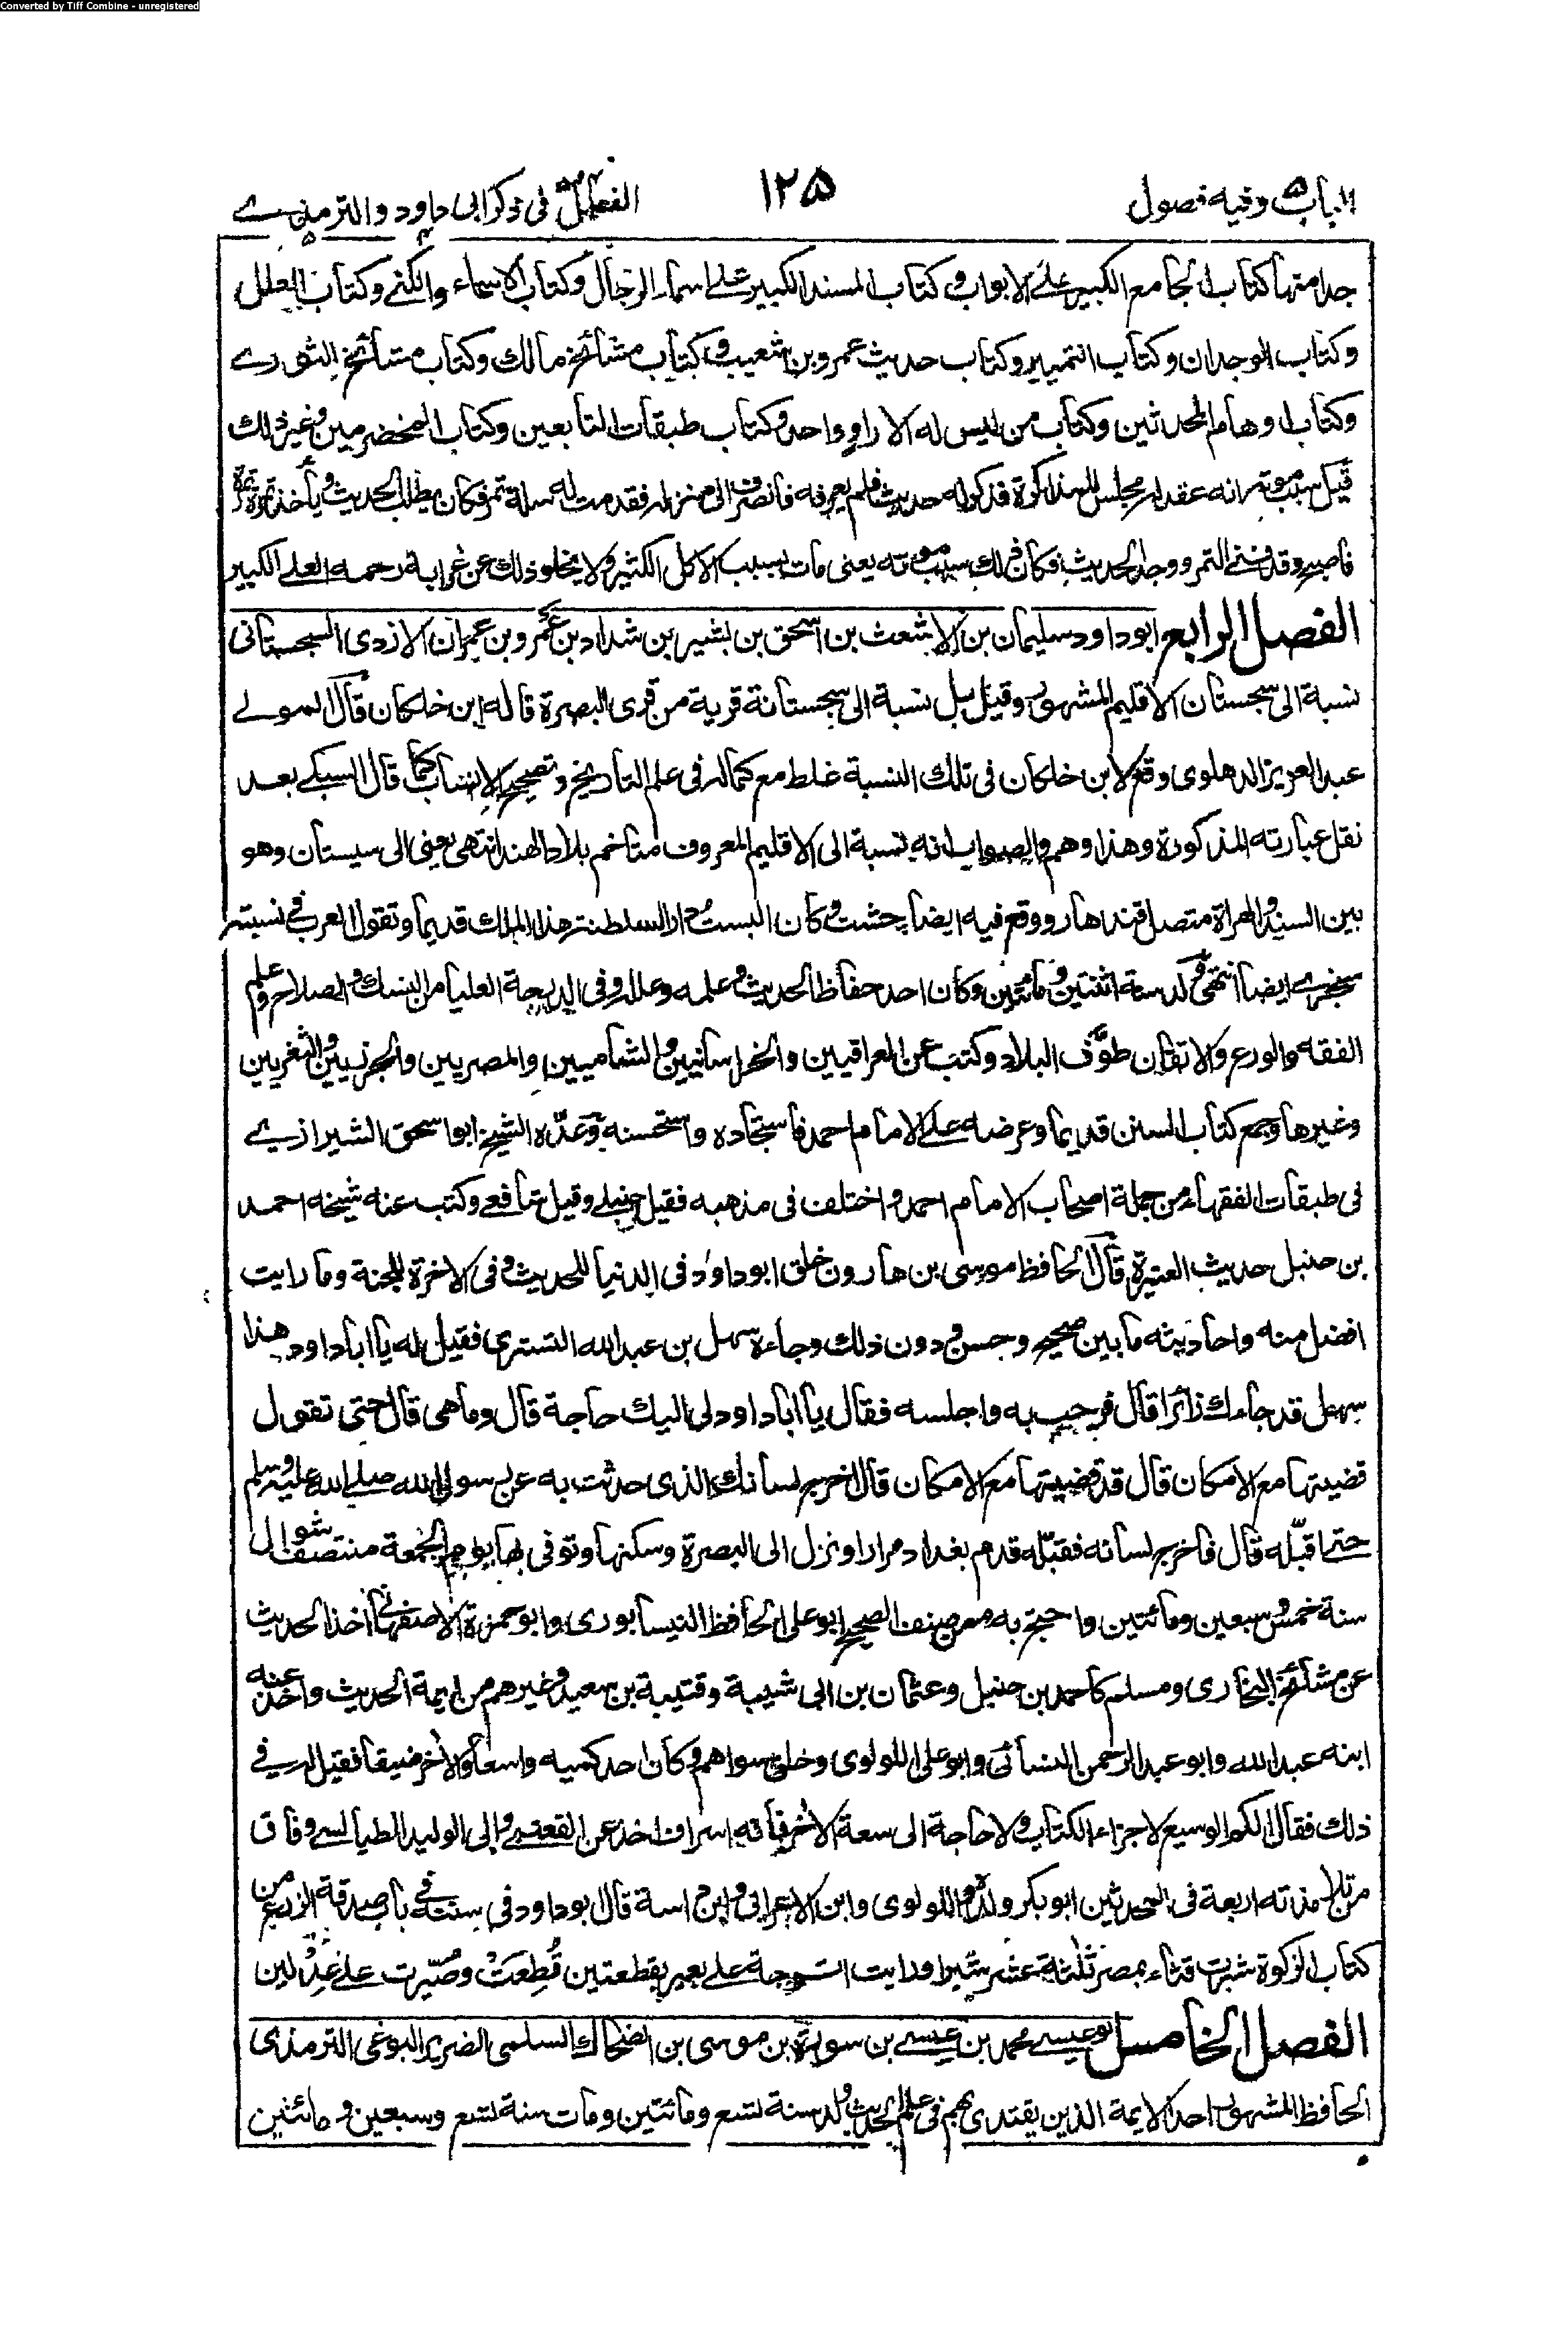 Converted by Tiff Combine - unregistered
الباب ۵ وفيه فصول
۱۲۵
الفصل في ذكر ابى داود والترمذي
جدا منها كتاب الجامع الكبير على الابواب وكتاب المسند الكبير على اسماء الرجال وكتاب الاسماء والكنے وكتاب العلل
وكتاب الوجدان وكتاب التمييز وكتاب حديث عمرو بن شعيب وكتاب مشائخ مالك وكتاب مشائخ الثوري
وكتاب اوهام المحدثين وكتاب من ليس له الا راو واحد وكتاب طبقات التابعين وكتاب المخضرمين وغير ذلك
قيل سبب موته انه عقد له مجلس للمذاكرة فذكر له حديث فلم يعرفه فانصرف الى منزله فقدمت له سلة تمر فكان يطلب الحديث ويأخذ تمرة تمرة
فاصبح وقد فنى التمر ووجد الحديث فكان ذلك سبب موته يعنى مات بسبب الاكل الكثير ولا يخلو ذلك عن غرابة رحمه العلى الكبير
الفصل الرابع ابو داود سليمان بن الاشعث بن اسحق بن بشير بن شداد بن عمرو بن عمران الازدى السجستانى
نسبة الى سجستان الاقليم المشهور وقيل بل نسبة الى سجستانة قرية من قرى البصرة قاله ابن خلكان قال المولے
عبد العزيز الدهلوى وقع لابن خلكان فى تلك النسبة غلط مع كماله فى علم التاريخ وتصحيح الانساب كما قال السبكے بعد
نقل عبارته المذكورة وهذا وهم والصواب انه نسبة الى الاقليم المعروف متاخم بلاد الهند انتهى يعنى الى سيستان وهو
بين السند والهراة متصل قندهار ووقع فيه ايضا چشت وكان البست دار السلطنة هذا الملك قديما وتقول العرب فى نسبته
سجزى ايضا انتهى ولد سنة اثنتين ومائتين وكان احد حفاظ الحديث وعلمه وعلله وفى الدرجة العليا من النسك والصلاح وعلم
الفقه والورع والاتقان طوّف البلاد وكتب عن العراقيين والخراسانيين والشاميين والمصريين والجزريين والثغريين
وغيرها وجمع كتاب السنن قديما وعرضه على الامام احمد فاستجاده واستحسنه وعدّه الشيخ ابو اسحق الشيرازي
فى طبقات الفقهاء من جملة اصحاب الامام احمد واختلف فى مذهبه فقيل حنبلے وقيل شافعے وكتب عنه شيخه احمد
بن حنبل حديث العتيرة قال الحافظ موسى بن هارون خلق ابو داود فى الدنيا للحديث وفى الاخرة للجنة وما رايت
افضل منه واحاديثه ما بين صحيح وحسن ودون ذلك وجاءه سهل بن عبد الله التسترى فقيل له يا ابا داود هذا
سهل قد جاءك زائرا قال فرحب به واجلسه فقال يا ابا داود لى اليك حاجة قال وما هى قال حتى تقول
قضيتها مع الامكان قال قد قضيتها مع الامكان قال اخرج لسانك الذى حدثت به عن رسول الله صلے الله عليه وسلم
حتے اقبّله قال فاخرج لسانه فقبّله قدم بغداد مرارا ونزل الى البصرة وسكنها وتوفى بها يوم الجمعة منتصف شوال
سنة خمس وسبعين ومائتين واحتج به من صنف الصحيح ابو على الحافظ النيسابورى وابو حمزة الاصفهانى اخذ الحديث
عن مشائخ البخارى ومسلم كاحمد بن حنبل وعثمان بن ابى شيبة وقتيبة بن سعيد وغيرهم من ايمة الحديث واخذ عنه
ابنه عبد الله وابو عبد الرحمن النسائى وابو على اللولوى وخلق سواهم وكان احد كميه واسعا والاخر ضيقا فقيل له في
ذلك فقال الكم الوسيع لاجزاء الكتاب ولا حاجة الى سعة الاخر فانه اسراف اخذ عن القعنبے وابى الوليد الطيالسے وفاق
من تلامذته اربعة فى المحدثين ابو بكر ولده واللولوى وابن الاعرابى وابن داسة قال بو داود فى سننه في باب صدقة الزرع من
كتاب الزكوة شبرت قثاء بمصر ثلثة عشر شبرا ورايت اترجة على بعير بقطعتين قُطِعَتْ وصُيّرت علے عِدْلين
الفصل الخامس بو عيسے محمد بن عيسے بن سورة بن موسى بن الضحاك السلمى الضرير البوغى الترمذى
الحافظ المشهور احد الايمة الذين يقتدى بهم فى علم الحديث ولد سنة تسع ومائتين ومات سنة تسع وسبعين ومائتين